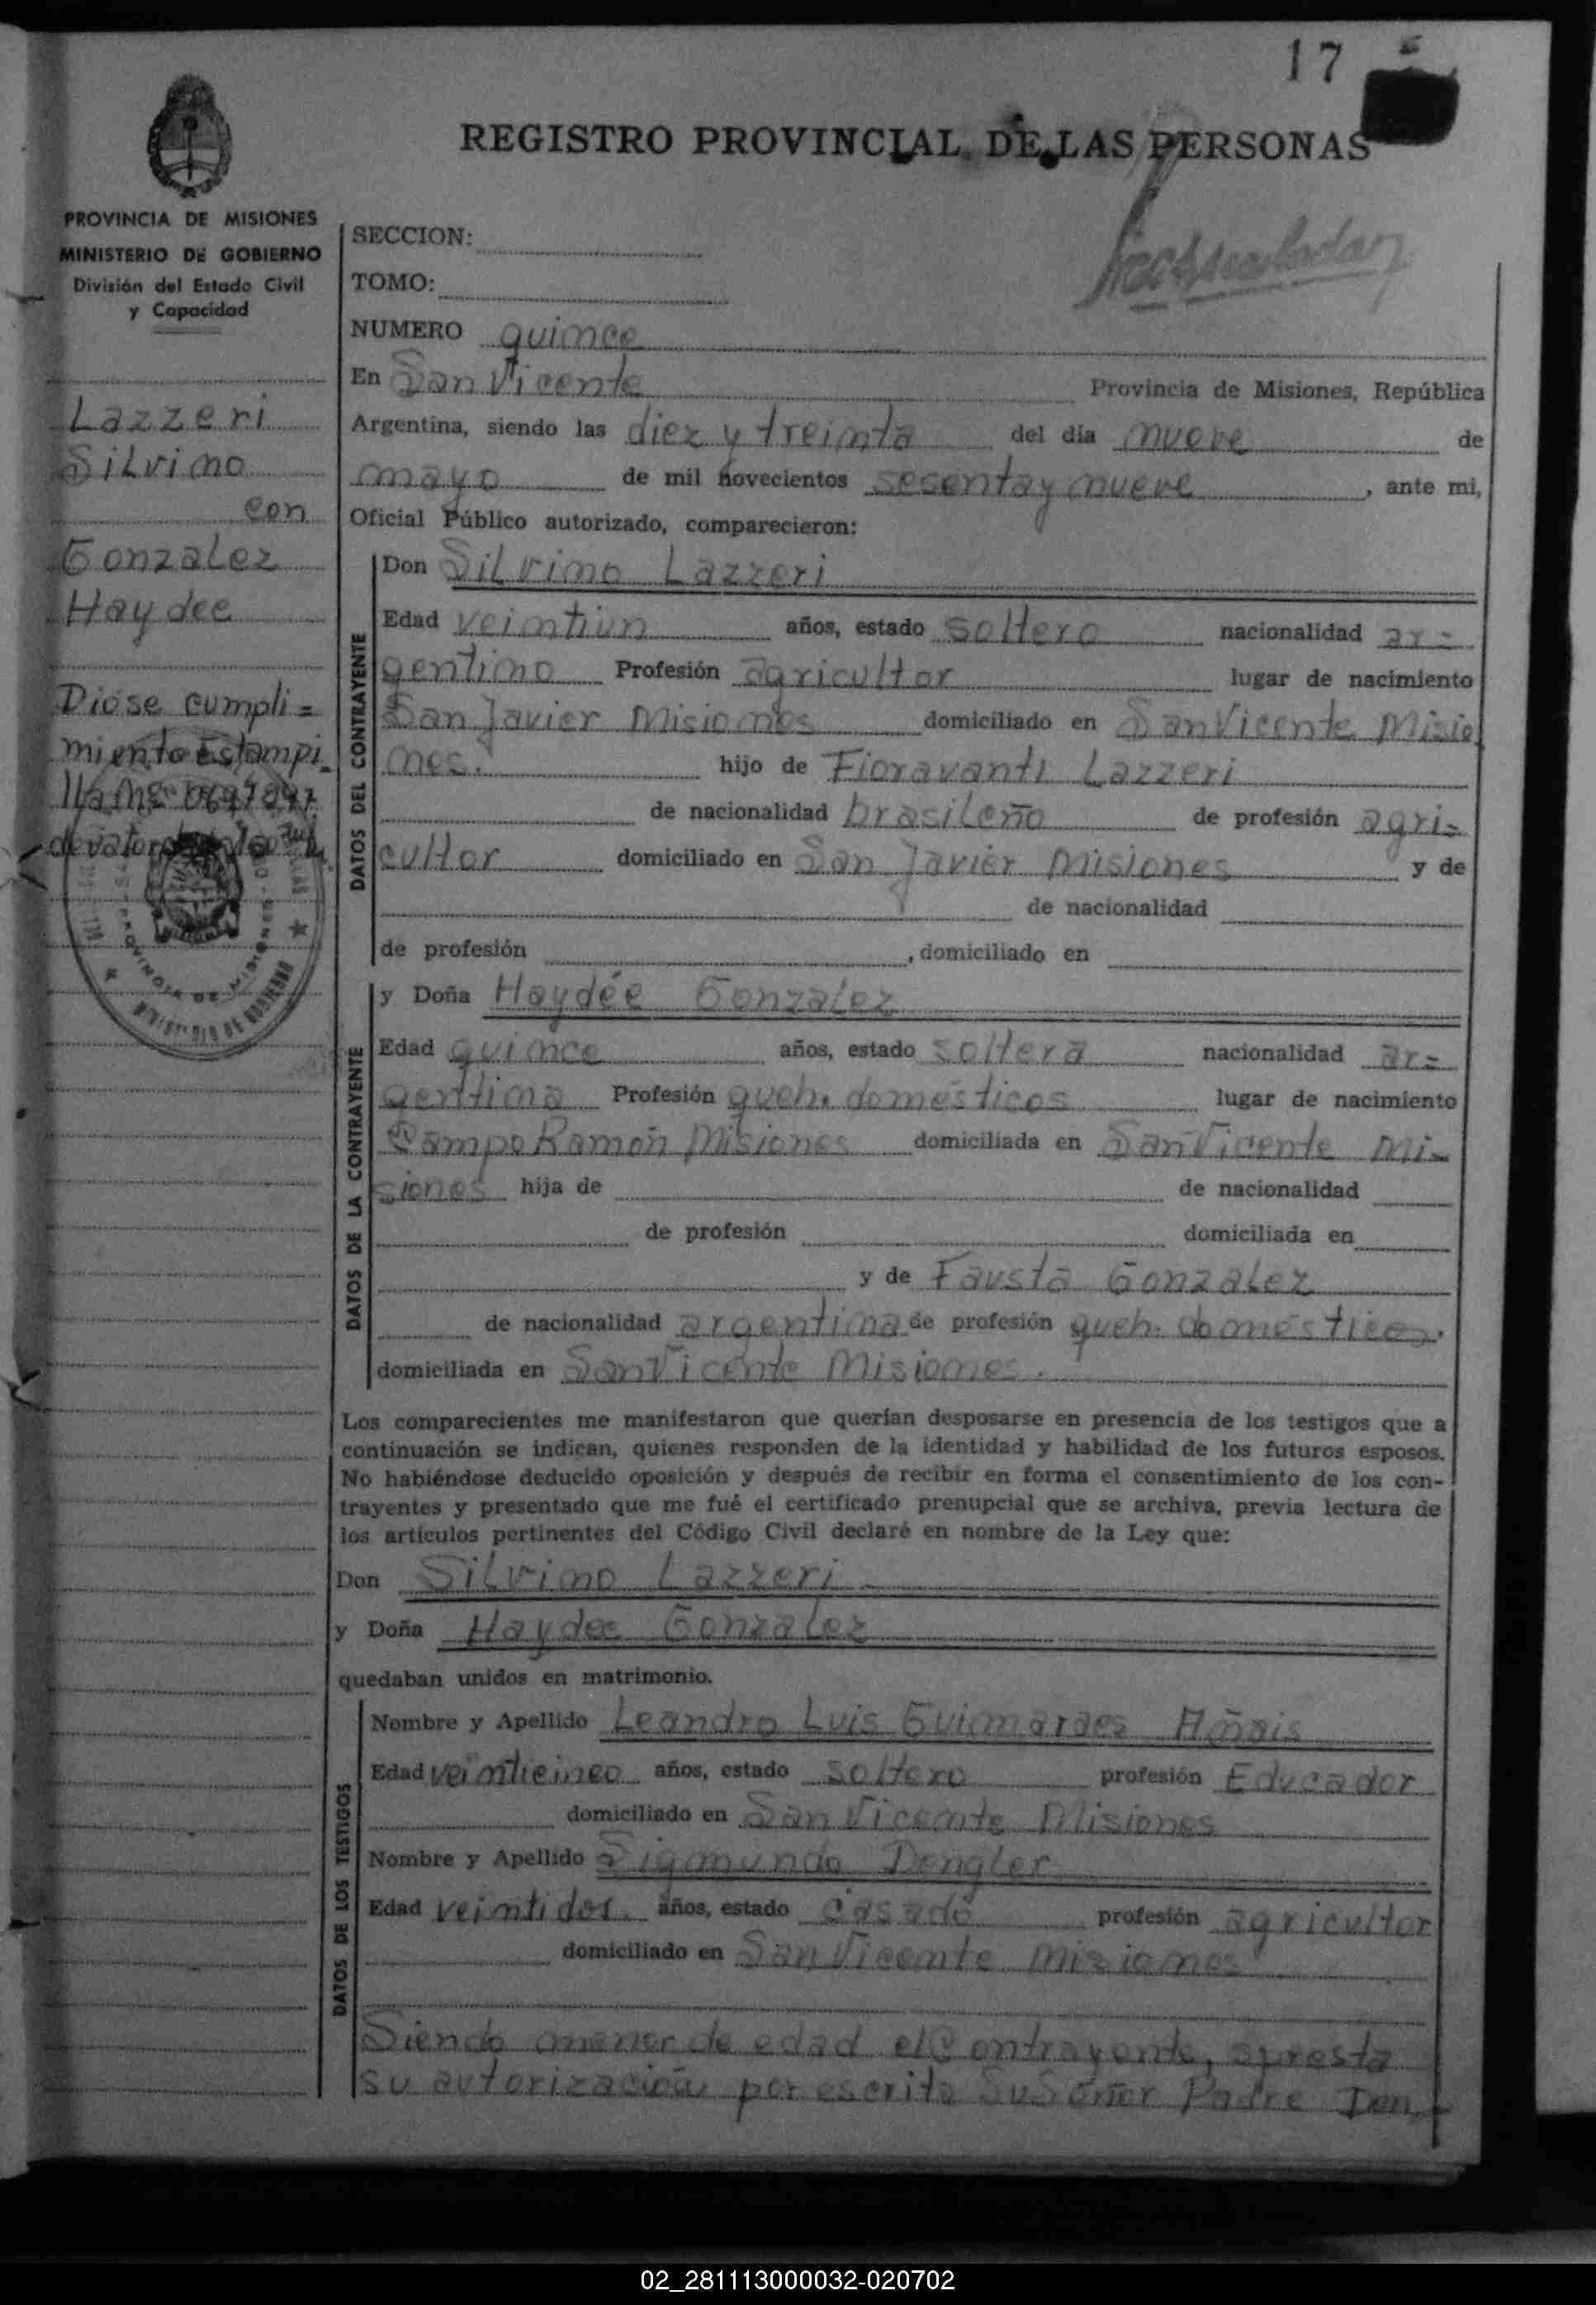 17
REGISTRO PROVINCIAL DE LAS PERSONAS
PROVINCIA DE MISIONES
MINISTERIO DE GOBIERNO
División del Estado Civil
y Capacidad
Lazzeri
Silvino
con
Gonzalez
Haydee
Dióse cumpli=
miento Estampi_
lla
de valor
PROVINCIA DE MISIONES
MINISTERIO DE GOBIERNO
SECCION:
TOMO:
NUMERO quince
En San Vicente Provincia de Misiones, República
Argentina, siendo las diez y treinta del día nueve de
mayo de mil novecientos sesenta y nueve, ante mi,
Oficial Público autorizado, comparecieron:
DATOS DEL CONTRAYENTE
Don Silvino Lazzeri
Edad veintiun años, estado soltero nacionalidad ar=
gentino Profesión agricultor lugar de nacimiento
San Javier Misiones domiciliado en San Vicente Misio
nes. hijo de Fioravanti Lazzeri
de nacionalidad brasileño de profesión agri=
cultor domiciliado en San Javier Misiones y de
de nacionalidad
de profesión , domiciliado en
DATOS DE LA CONTRAYENTE
y Doña Haydée Gonzalez
Edad quince años, estado soltera nacionalidad ar=
gentina Profesión queh. domésticos lugar de nacimiento
Campo Ramón Misiones domiciliada en San Vicente Mi-
siones hija de de nacionalidad
de profesión domiciliada en
y de Fausta Gonzalez
de nacionalidad argentina de profesión queh. domésticos.
domiciliada en San Vicente Misiones.
Los comparecientes me manifestaron que querían desposarse en presencia de los testigos que a
continuación se indican, quienes responden de la identidad y habilidad de los futuros esposos.
No habiéndose deducido oposición y después de recibir en forma el consentimiento de los con-
trayentes y presentado que me fué el certificado prenupcial que se archiva, previa lectura de
los artículos pertinentes del Código Civil declaré en nombre de la Ley que:
Don Silvino Lazzeri
y Doña Haydee Gonzalez
quedaban unidos en matrimonio.
DATOS DE LOS TESTIGOS
Nombre y Apellido Leandro Luis Guimaraes Añais
Edad veinticinco años, estado soltero profesión Educador
domiciliado en San Vicente Misiones
Nombre y Apellido Sigmundo Dengler
Edad veintidos. años, estado casado profesión agricultor
domiciliado en San Vicente Misiones
Siendo menor de edad el Contrayente, presta
su autorización por escrito Su Señor Padre Don
02_281113000032-020702